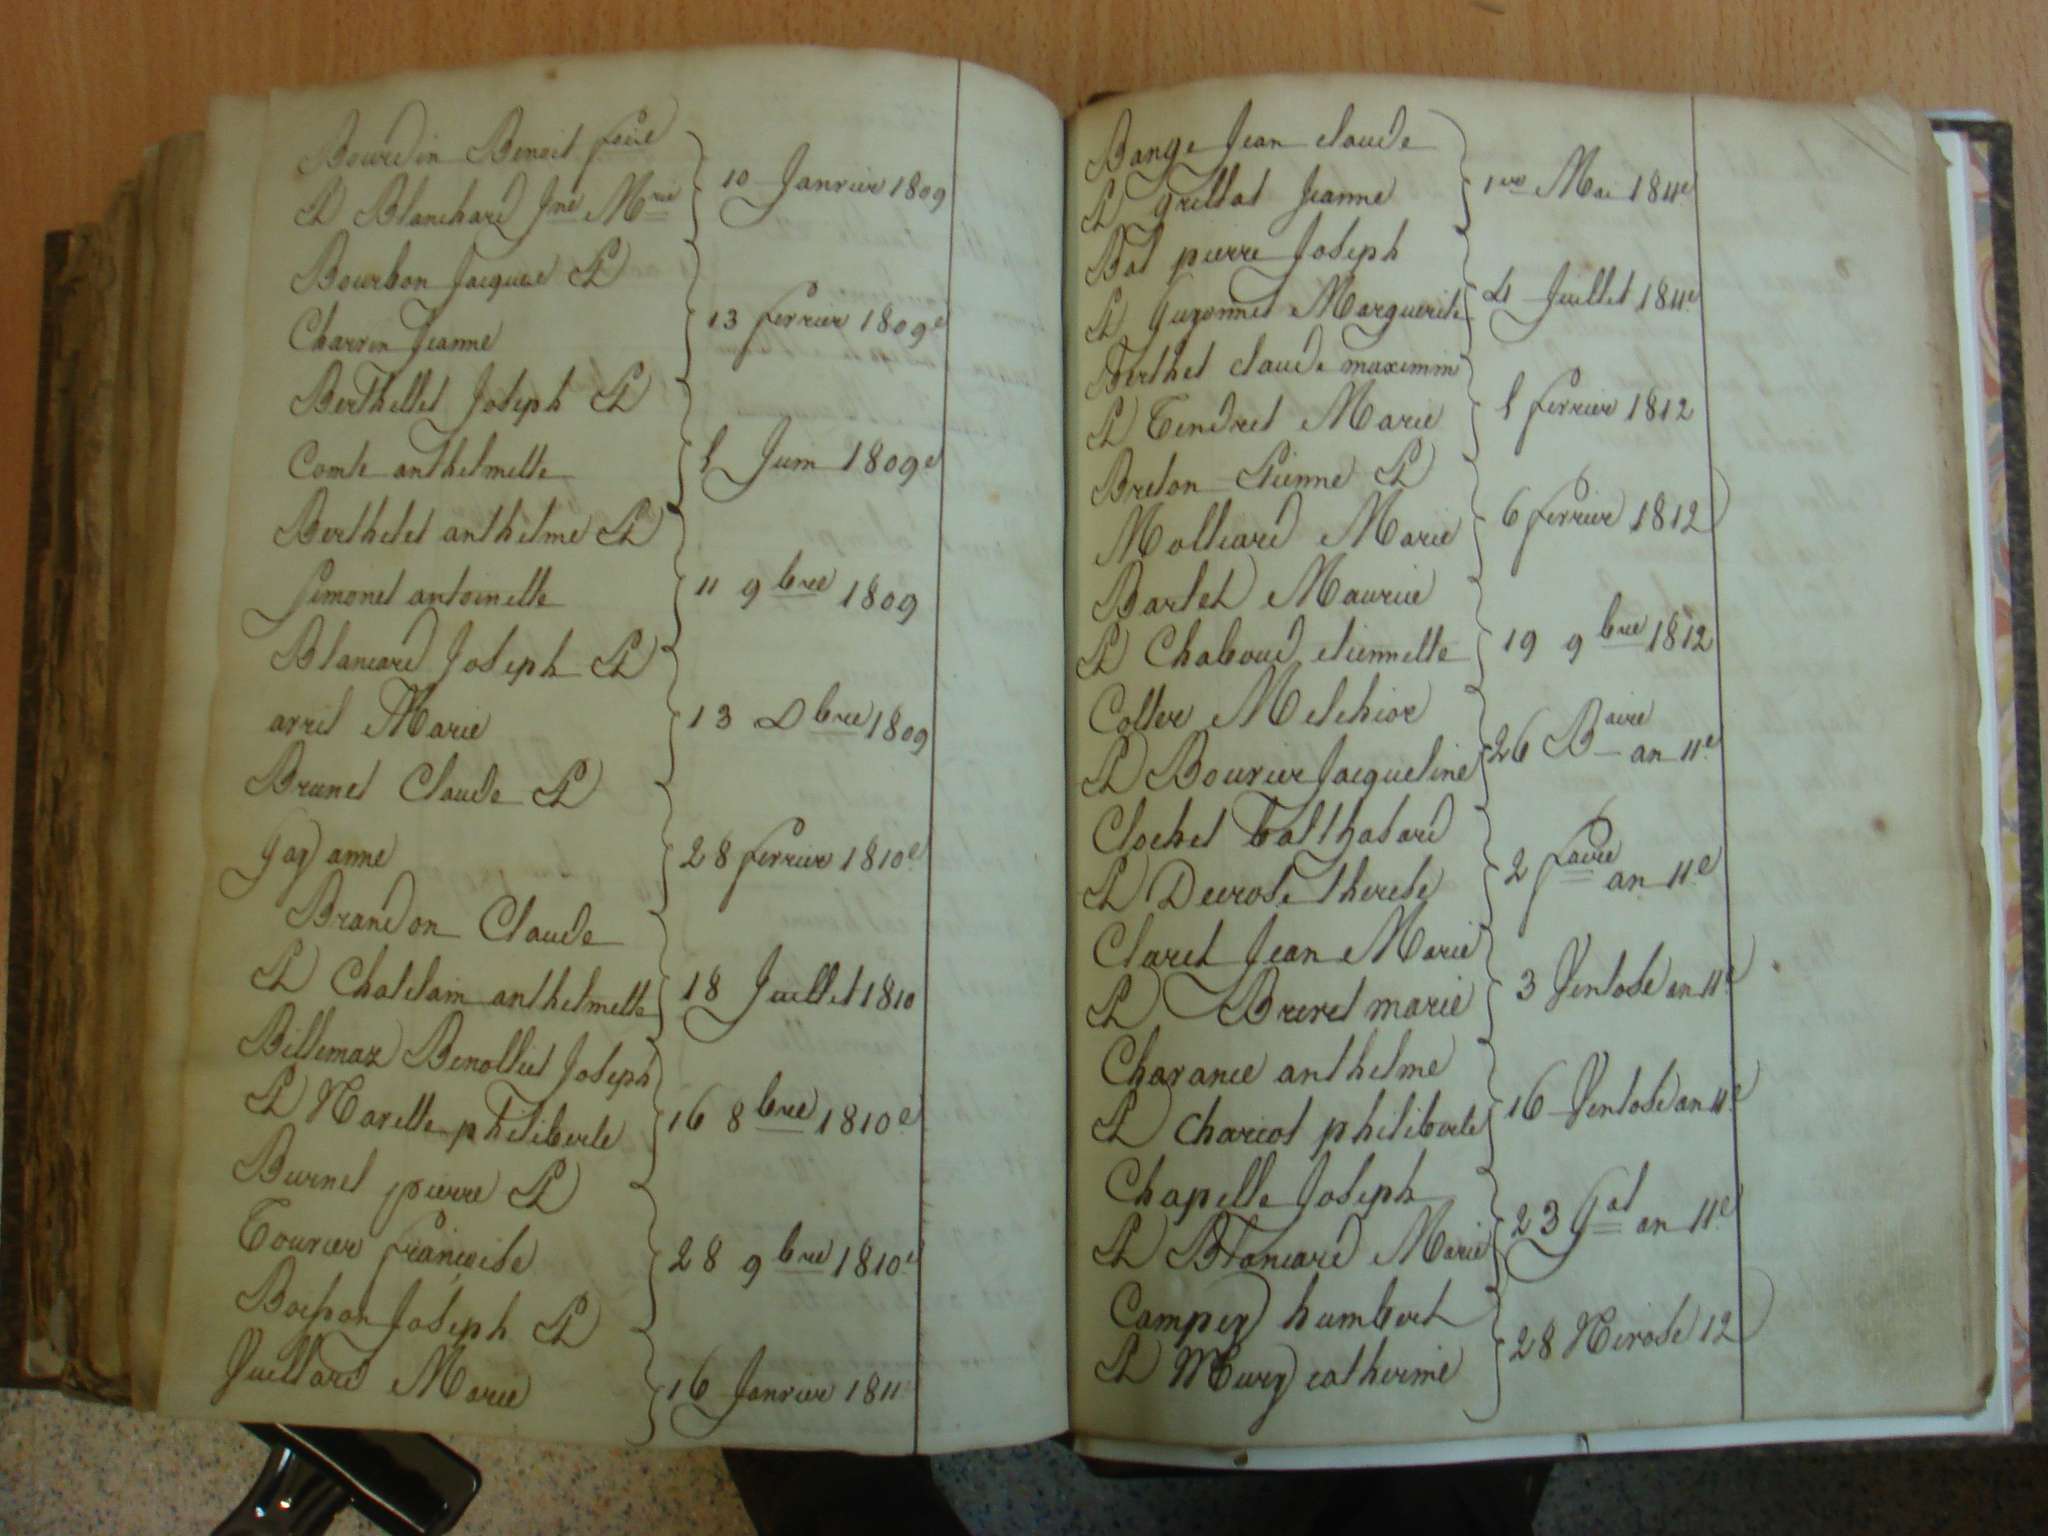 Bourdin Benoit
Et Blanchard Jne Mrie
10 Janvier 1809
Bourbon Jacques Et
Charvin Jeanne
13 fevrier 1809e
Berthellet Joseph Et
Comte anthelmette
1 Juin 1809e
Berthelet anthelme Et
Simonet antoinette
11 9bre 1809
Blancard Joseph Et
arvet Marie
13 Dbre 1809
Brunet Claude Et
Gay anne
28 fevrier 1810e
Brandon Claude
Et Chatelain anthelmette
18 Juillet 1810
Billemaz Benolliet Joseph
Et Navette philiberte
16 8bre 1810e
Burnet pierre Et
Tournier françoise
28 9bre 1810e
Boisson Joseph Et
Juillard Marie
16 Janvier 1811
Bange Jean claude
Et Grillat Jeanne
1er Mai 1811e
Bal pierre Joseph
Et Guyonnet Marguerite
4 Juillet 1811e
Berthet claude maximin
Et Tendret Marie
1 fevrier 1812
Breton Etienne Et
Molliard Marie
6 fevrier 1812
Barlet Maurice
Et Chaboud etiennette
19 9bre 1812
Collet Melchior
Et Bouvier Jacqueline
26 Baire an 11e
Clochet balthasard
Et Decrose therese
2 faire an 11e
Claret Jean Marie
Et Brevet marie
3 Ventose an 11e
Charance anthelme
Et Chariot philiberte
16 Ventose an 11e
Chapelle Joseph
Et Blancard Marie
23 Gal an 11e
Campey humbert
Et Mury catherine
28 Nivose 12